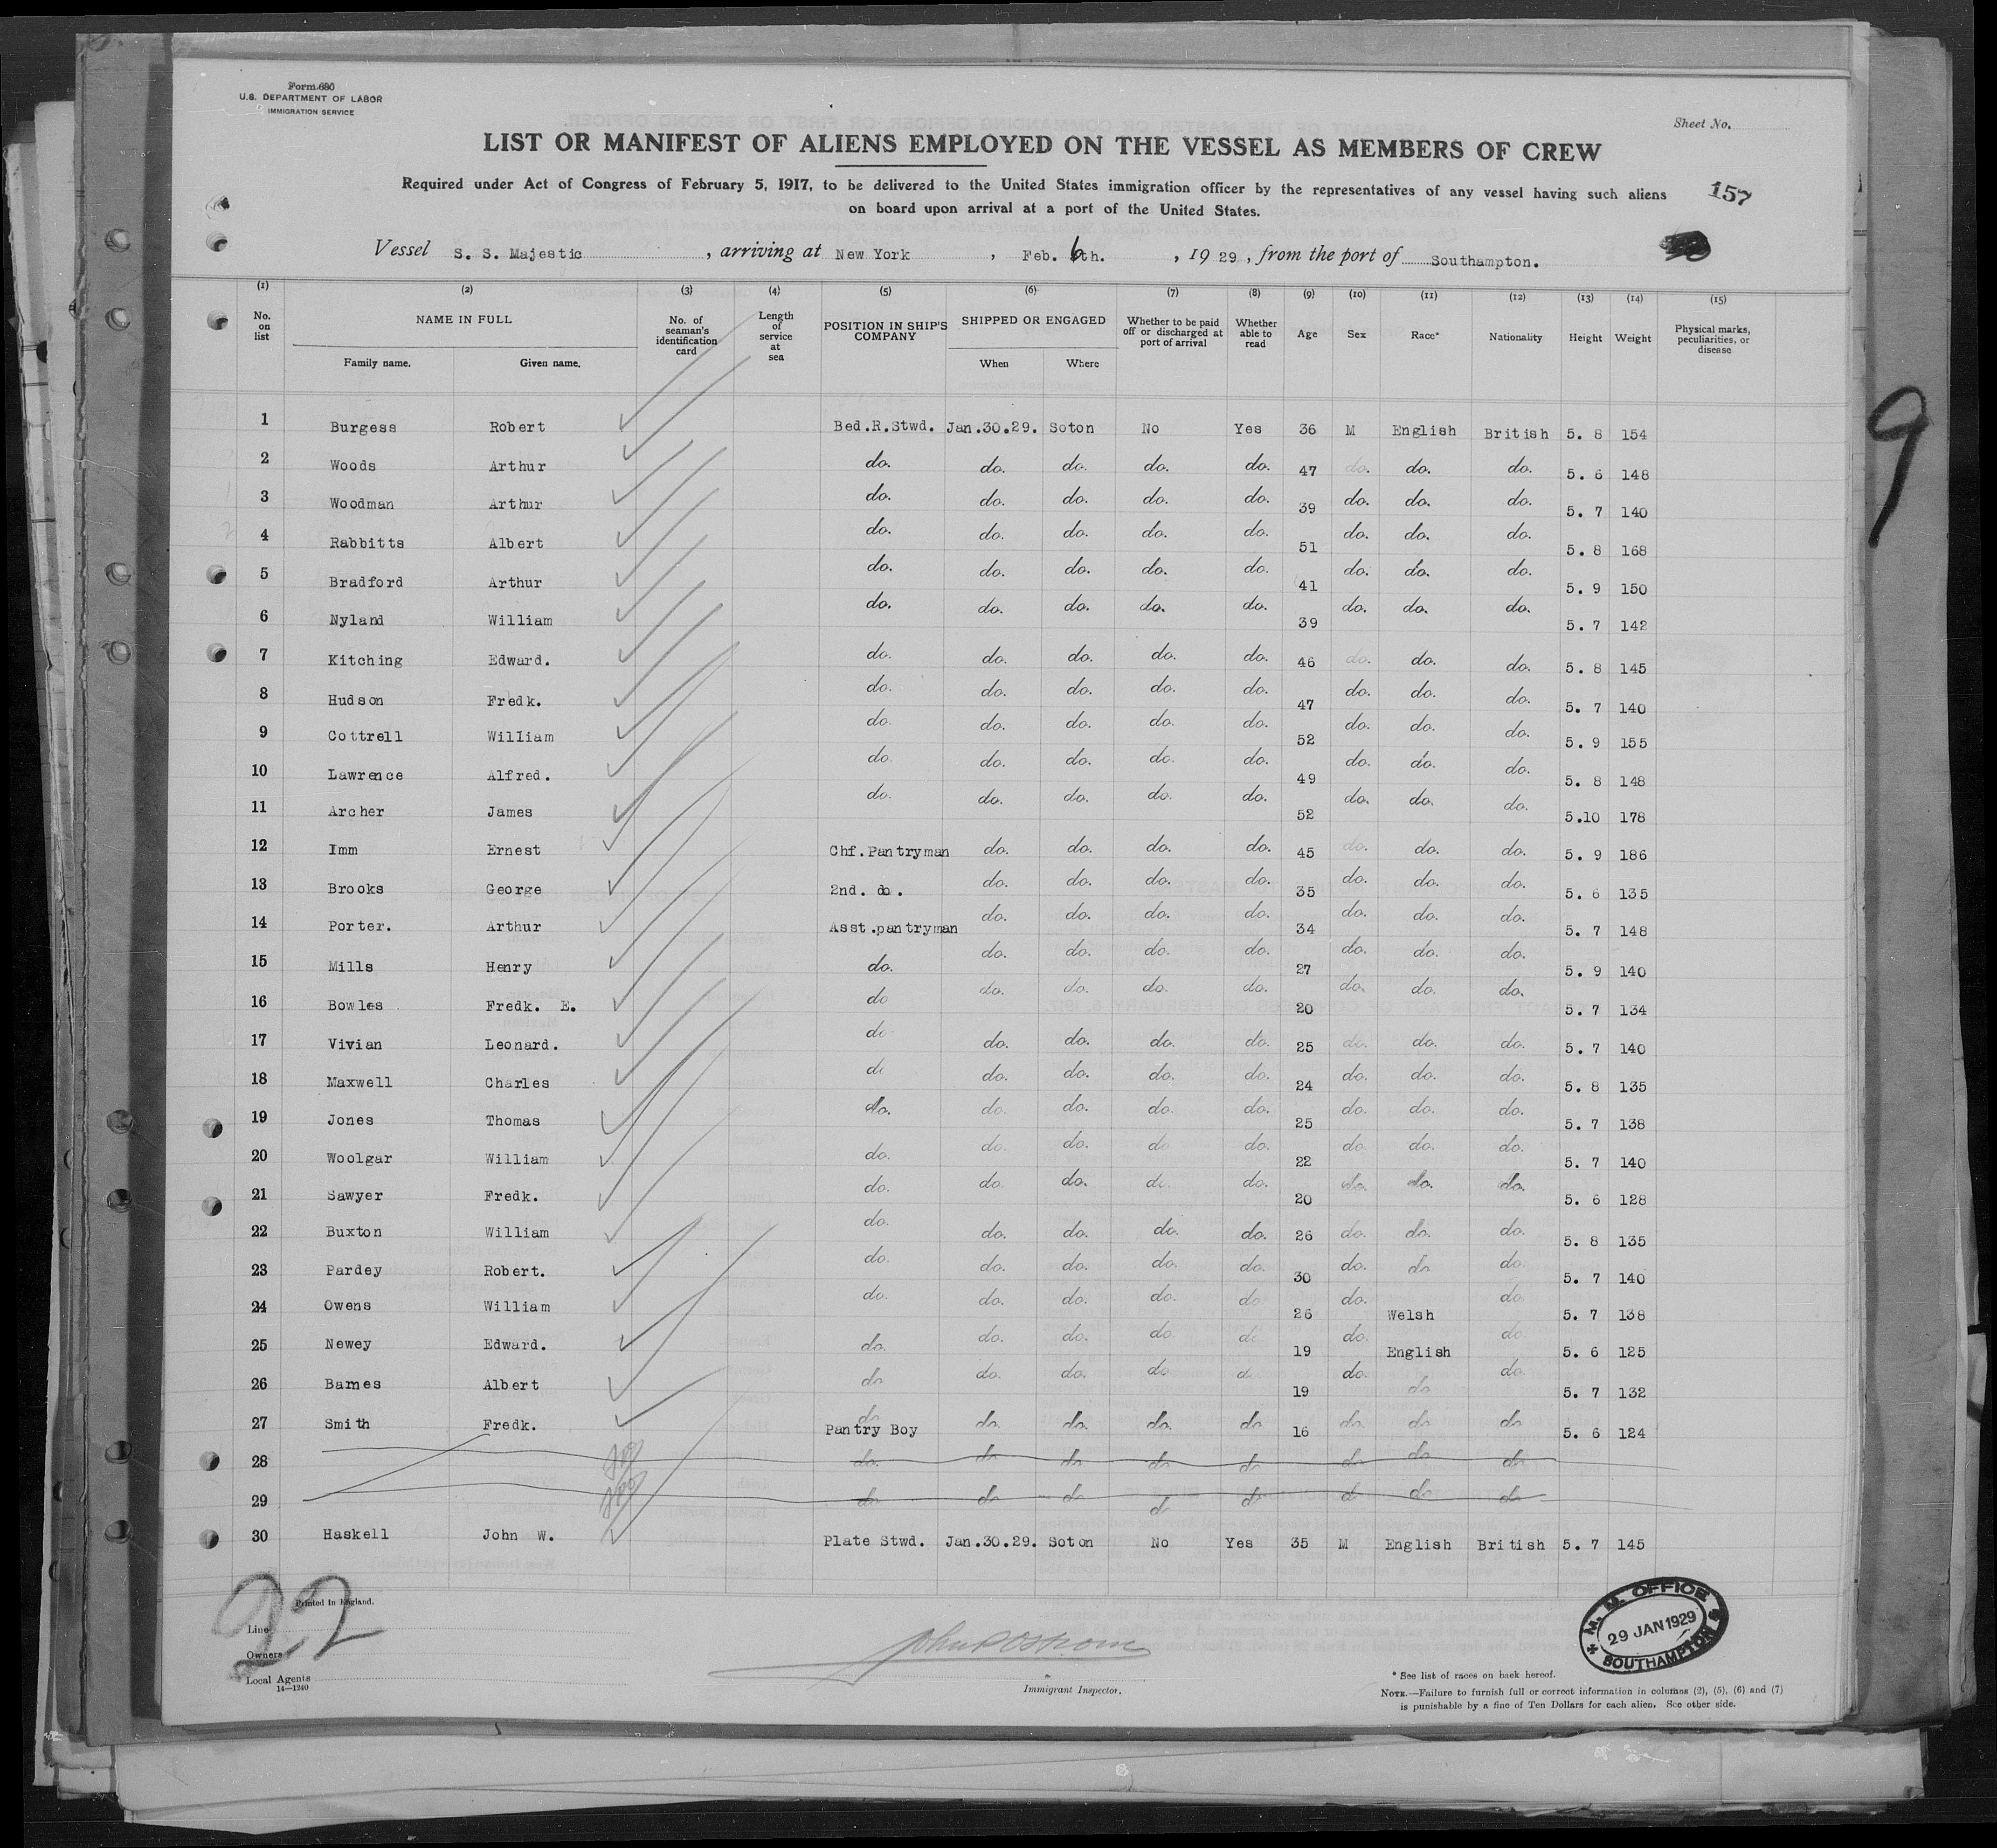 Form 680
U.S. DEPARTMENT OF LABOR
IMMIGRATION SERVICE
Sheet No.
LIST OR MANIFEST OF ALIENS EMPLOYED ON THE VESSEL AS MEMBERS OF CREW
Required under Act of Congress of February 5, 1917, to be delivered to the United States immigration officer by the representatives of any vessel having such aliens
on board upon arrival at a port of the United States.
157
Vessel S. S. Majestic, arriving at New York, Feb. 6th., 1929, from the port of Southampton.
(1) (2) (3) (4) (5) (6) (7) (8) (9) (10) (11) (12) (13) (14) (15)
No. on list NAME IN FULL Family name. Given name. No. of seaman's identification card Length of service at sea POSITION IN SHIP'S COMPANY SHIPPED OR ENGAGED When Where Whether to be paid off or discharged at port of arrival Whether able to read Age Sex Race* Nationality Height Weight Physical marks, peculiarities, or disease
1 Burgess Robert Bed.R.Stwd. Jan.30.29. Soton No Yes 36 M English British 5. 8 154
2 Woods Arthur do. do. do. do. do. 47 do. do. do. 5. 6 148
3 Woodman Arthur do. do. do. do. do. 39 do. do. do. 5. 7 140
4 Rabbitts Albert do. do. do. do. do. 51 do. do. do. 5. 8 168
5 Bradford Arthur do. do. do. do. do. 41 do. do. do. 5. 9 150
6 Nyland William do. do. do. do. do. 39 do. do. do. 5. 7 142
7 Kitching Edward. do. do. do. do. do. 46 do. do. do. 5. 8 145
8 Hudson Fredk. do. do. do. do. do. 47 do. do. do. 5. 7 140
9 Cottrell William do. do. do. do. do. 52 do. do. do. 5. 9 155
10 Lawrence Alfred. do. do. do. do. do. 49 do. do. do. 5. 8 148
11 Archer James do. do. do. do. do. 52 do. do. do. 5.10 178
12 Imm Ernest Chf.Pantryman do. do. do. do. 45 do. do. do. 5. 9 186
13 Brooks George 2nd. do. do. do. do. do. 35 do. do. do. 5. 6 135
14 Porter. Arthur Asst.pantryman do. do. do. do. 34 do. do. do. 5. 7 148
15 Mills Henry do. do. do. do. do. 27 do. do. do. 5. 9 140
16 Bowles Fredk. E. do do. do. do. do. 20 do. do. do. 5. 7 134
17 Vivian Leonard. do do. do. do. do. 25 do. do. do. 5. 7 140
18 Maxwell Charles do do. do. do. do. 24 do. do. do. 5. 8 135
19 Jones Thomas do. do. do. do. do. 25 do. do. do. 5. 7 138
20 Woolgar William do. do. do. do do. 22 do do. do. 5. 7 140
21 Sawyer Fredk. do. do. do. do. do. 20 do. do. do. 5. 6 128
22 Buxton William do. do. do. do. do. 26 do. do. do. 5. 8 135
23 Pardey Robert. do. do. do. do. do. 30 do. do do. 5. 7 140
24 Owens William do. do. do. do. do 26 do. Welsh do. 5. 7 138
25 Newey Edward. do. do. do. do. do 19 do. English do 5. 6 125
26 Barnes Albert do do. do. do do 19 do. do do. 5. 7 132
27 Smith Fredk. do Pantry Boy do. do. do. do 16 do. do do 5. 6 124
28 do. do do do do do do do
29 do do do do do do do do
30 Haskell John W. Plate Stwd. Jan.30.29. Soton No Yes 35 M English British 5. 7 145
9
22
Printed in England.
Line
Owners
Local Agents
14—1240
Immigrant Inspector.
M. M. OFFICE
29 JAN 1929
SOUTHAMPTON
* See list of races on back hereof.
NOTE.—Failure to furnish full or correct information in columns (2), (5), (6) and (7)
is punishable by a fine of Ten Dollars for each alien. See other side.